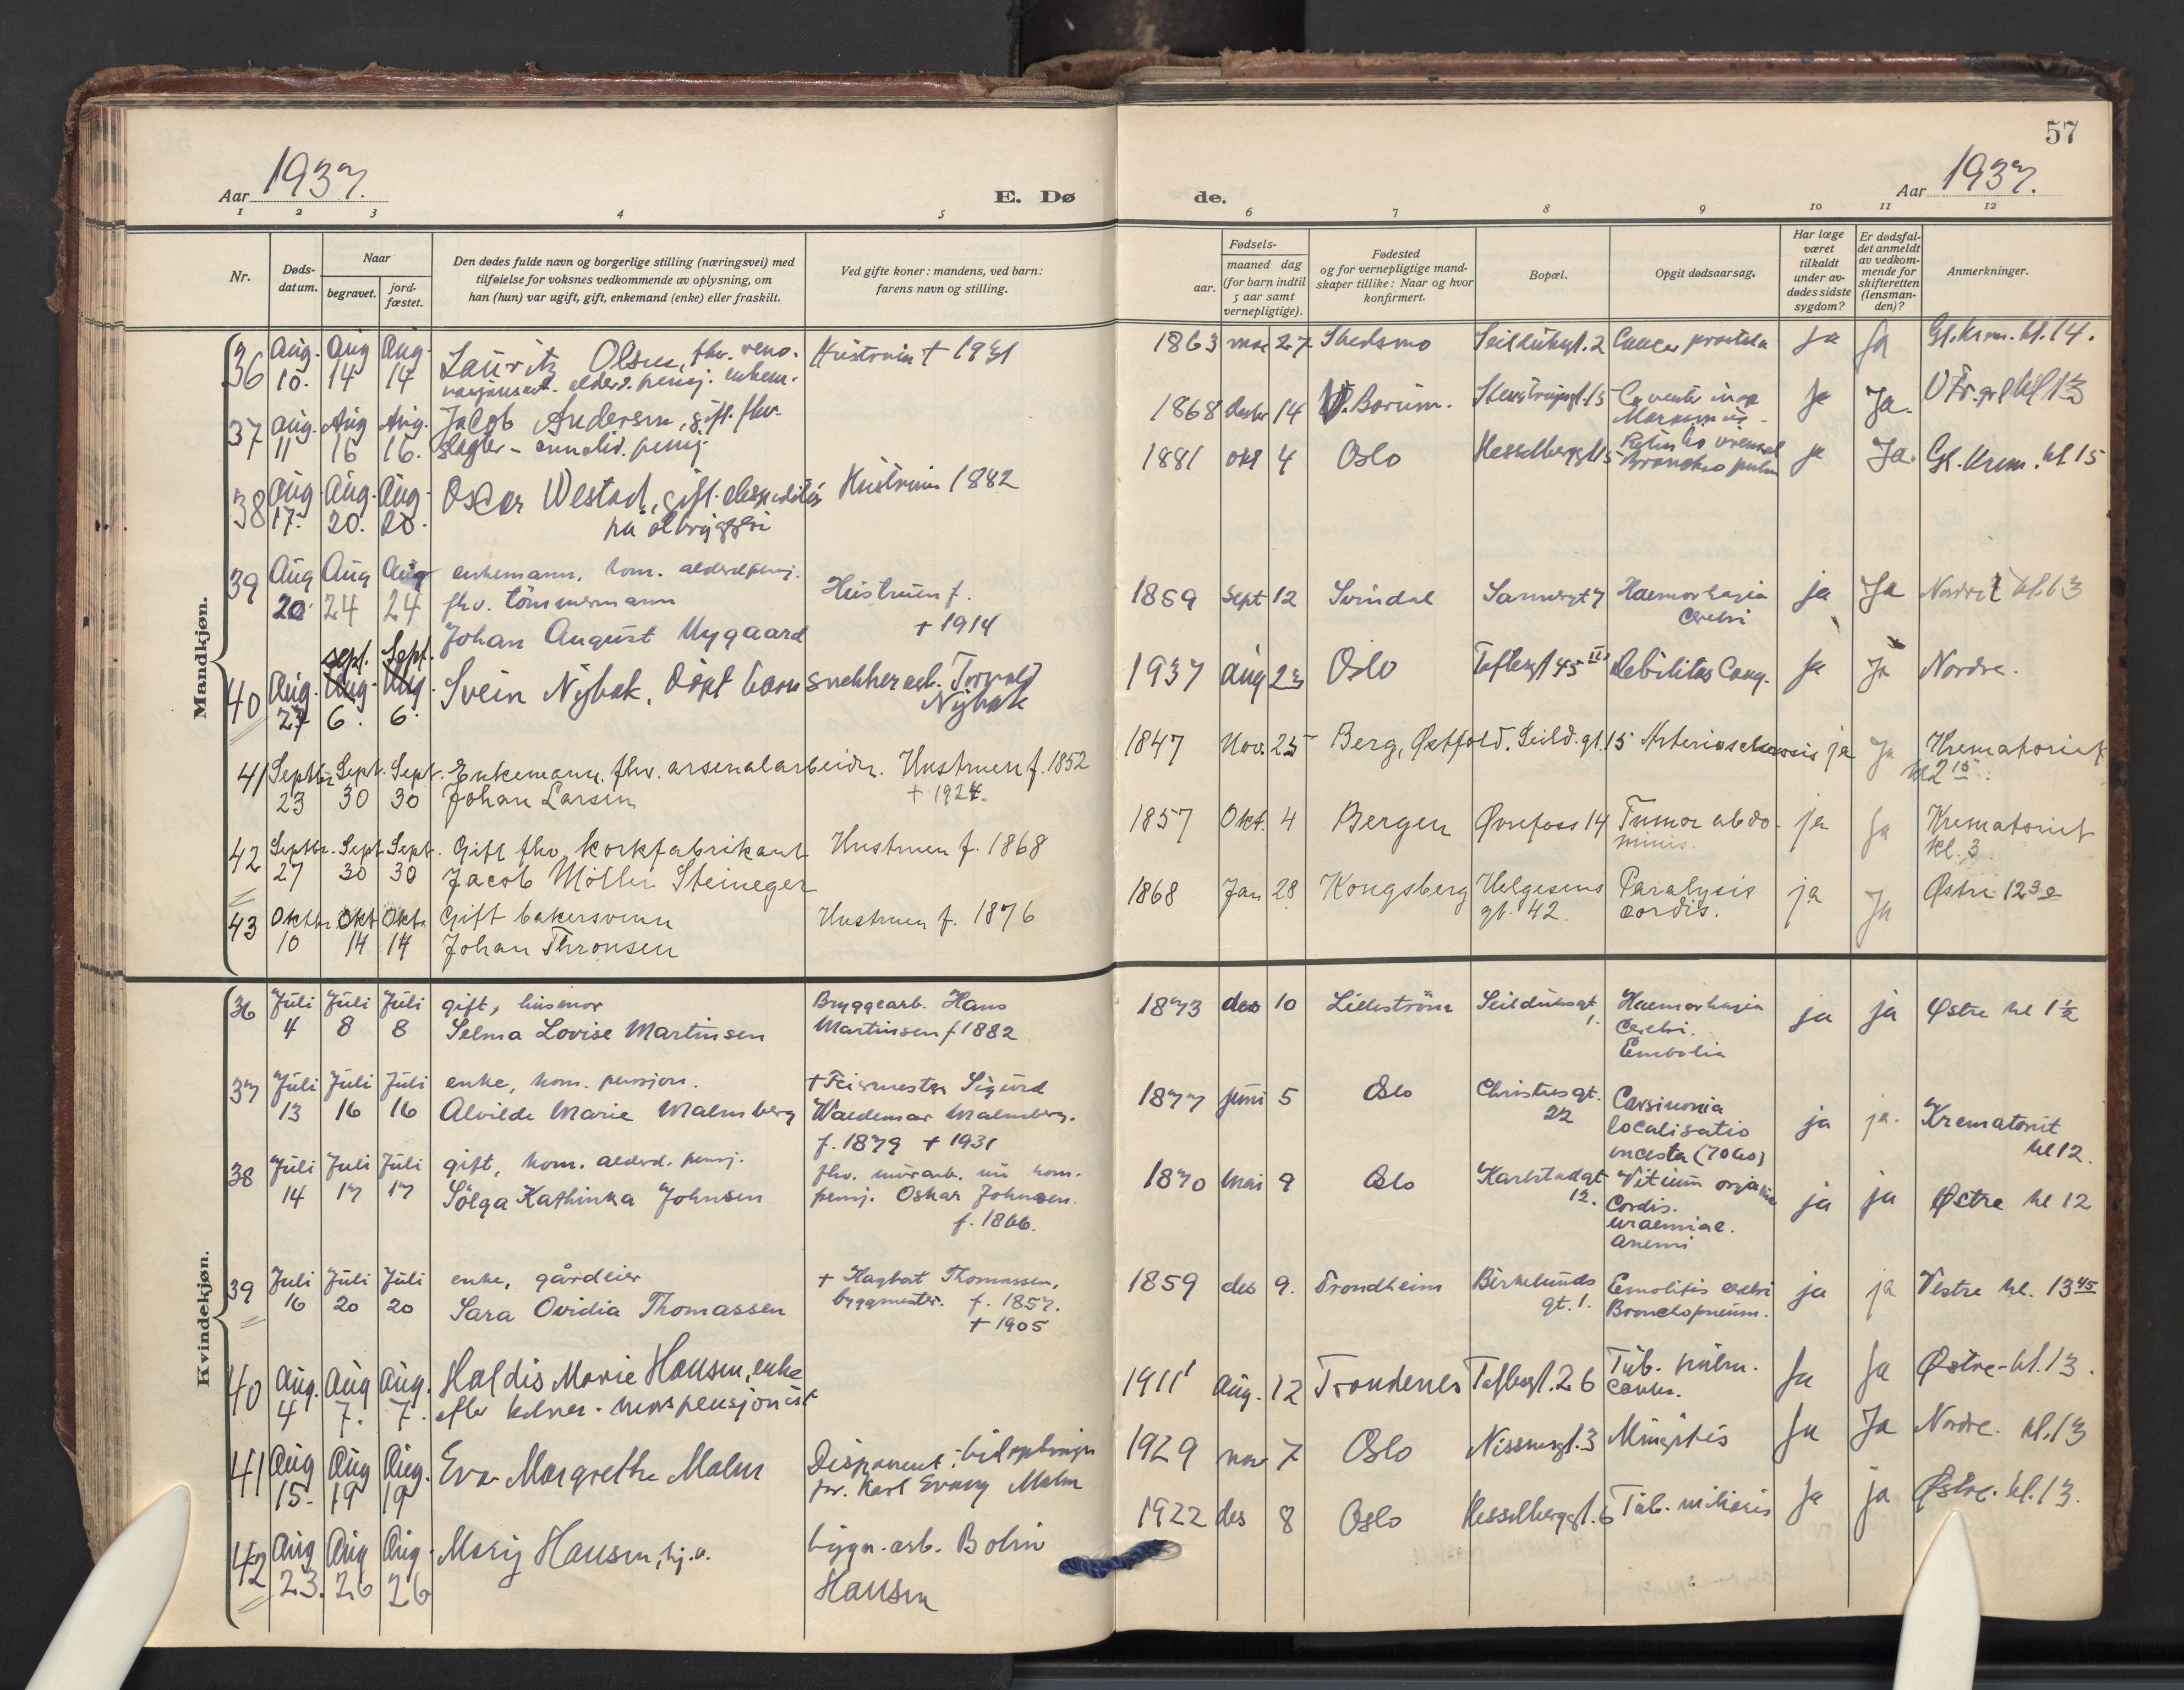 57
Aar 1937.
E. Dø
de.
Aar 1937.
1 2 3 4 5 6 7 8 9 10 11 12
Nr.
Døds-
datum.
Naar
begravet.
jord-
fæstet.
Den dødes fulde navn og borgerlige stilling (næringsvei) med
tilføielse for voksnes vedkommende av oplysning, om
han (hun) var ugift, gift, enkemand (enke) eller fraskilt.
Ved gifte koner: mandens, ved barn:
farens navn og stilling.
Fødsels-
aar.
maaned dag
(for barn indtil
5 aar samt
vernepligtige).
Fødested
og for vernepligtige mand-
skaper tillike: Naar og hvor
konfirmert.
Bopæl.
Opgit dødsaarsag.
Har læge
været
tilkaldt
under av-
dødes sidste
sygdom?
Er dødsfal-
det anmeldt
av vedkom-
mende for
skifteretten
(lensman-
den)?
Anmerkninger.
Mandkjøn.
36 Aug. Aug Aug. Lauritz Olsen, fhv. reno- Hustruen † 1931
10. 14 14
1863 27 Skedsmo Seilduksgt. 2 Cancer prostata Ja Ja Gl. Krem. kl. 14.
37 Aug. Aug Aug. Jacob Andersen, gift. fhv.
11 16 16. slagter - invalid. pensj.
1868 14 Ja Ja.
38 Aug Aug. Aug. Oscar Westad, gift. ekspeditør Hustruen 1882
17. 20. 20. på ølbryggeri
1881 okt 4 Oslo Hesselbergsgt 15 ja Ja. Gl. Krem. kl 15
39 Aug Aug Aug enkemann, kom. alderdspensj.
20. 24 24 fhv. tömmermann Hustruen f.
Johan August Nygaard † 1914
1869 Sept 12 Svindal Sannergt 7 Haemorhagia ja Ja Nordre kl. 13
cerebri
40 Aug. Sept. Sept. Svein Nybak, döpt barn snekkerarb. Torvald
27 6. 6. Nybak
1937 Aug 23 Oslo Toftesgt 45 III Debilitas Cong. Ja Ja Nordre.
41 Septbr Sept. Sept. Enkemann, fhv. arsenalarbeider. Hustruen f. 1852
23 30 30 Johan Larsen † 1924.
1847 Nov. 25 Berg, Østfold. Seild. gt. 15 Arteriosclerosis ja Ja Krematoriet
kl 2 15.
42 Septbr. Sept Sept. Gift fhv. korkfabrikant Hustruen f. 1868
27 30 30 Jacob Möller Steineger
1857 Okt. 4 Bergen Øvrefoss 14 Tumor abdo- ja Ja Krematoriet
minis. kl. 3
43 Oktbr Okt Okt. Gift bakersvenn Hustruen f. 1876
10 14 14 Johan Thronsen
1868 Jan 28 Kongsberg Helgesens Paralysis ja Ja Østre 12 30
gt. 42. cordis.
Kvindekjøn.
36 Juli Juli Juli gift, husmor Bryggearb. Hans
4 8 8 Selma Lovise Martinsen Martinsen f 1882
1873 des 10 Lilleström Seilduksgt Haemorhagia ja ja Østre kl 1 1/2
1. cerebri.
Embolia
37 Juli Juli Juli enke, kom. pensjon. † Feiermester Sigurd
13 16 16 Alvilde Marie Malmberg Waldemar Malmberg.
f. 1879 † 1931
1877 juni 5 Oslo Christiesgt. Carsinonia ja ja. Krematoriet
22 localisatio kl 12.
38 Juli Juli Juli gift, kom. alderd. pensj. fhv. murarb. nu kom.
14 17 17 Solga Kathinka Johnsen pensj. Oskar Johnsen.
f. 1866.
1870 mai 9 Oslo Karlstadgt Vitium ja ja Østre kl 12
12. Cordis.
uraemiae.
anemi
39 Juli Juli Juli enke, gårdeier † Hagbart Thomassen,
16 20 20 Sara Ovidia Thomassen byggmester. f. 1857.
† 1905
1859 des 9. Trondheim Birkelunds Emolitis cerebri ja ja Vestre kl. 13 45
gt. 1. Bronchopneum.
40 Aug. Aug Aug. Haldis Marie Hansen, enke
4 7. 7. efter kelner - morspensjonist
1911 Aug. 12 Trondenes Toftesgt. 26 Tub. pulm. Ja Ja Østre - kl. 13.
41 Aug Aug Aug. Eva Margrethe Malm Disponent
15. 19 19 Karl Malm
1929 nov 7 Oslo Nissensgt. 3 Mingitis Ja Ja Nordre. kl. 13
42 Aug Aug Aug. Mary Hansen, hj. v. bygn. arb. Bolin
23. 26 26 Hansen
1922 des 8 Oslo Hesselbergsgt. 6 Tub. miliaris Ja ja Østre. kl. 13.